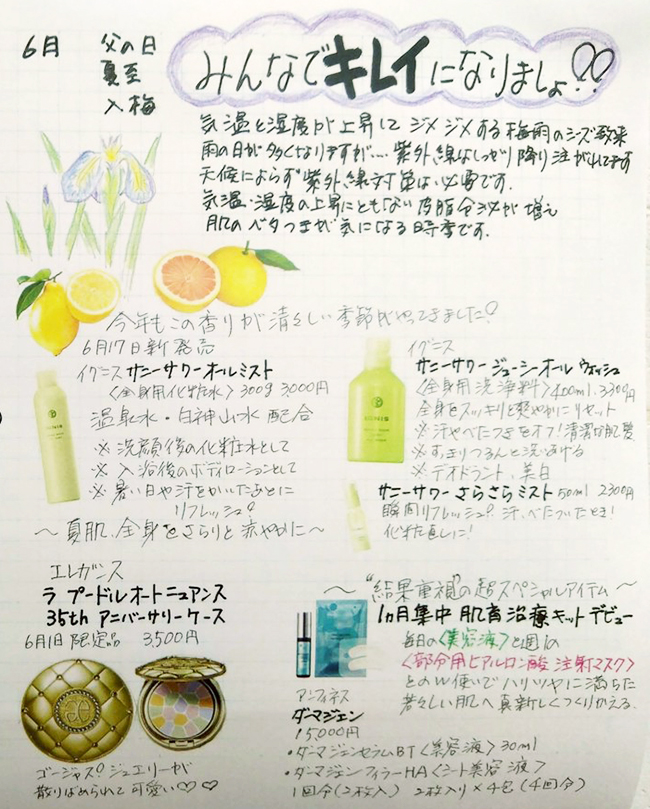 6月
父の日
夏至
入梅
みんなでキレイになりましょ!?
気温と湿度が上昇して ジメジメする梅雨のシーズン到来
雨の日が多くなりますが…紫外線はしっかり降り注がれてます
天候によらず紫外線対策は必要です.
気温・湿度の上昇にともない 皮脂分泌が増え
肌のベタつきが気になる時季です.
今年もこの香りが清々しい季節がやってきました!
6月17日新発売
イグニス サニーサワーオールミスト
〈全身用化粧水〉300g 3,000円
温泉水・白神山水 配合
※ 洗顔後の化粧水として
※ 入浴後のボディローションとして
※ 暑い日や汗をかいたあとに
リフレッシュ!
〜夏肌、全身をさらりと涼やかに〜
イグニス
サニーサワー ジューシーオール ウォッシュ
〈全身用洗浄料〉400ml. 3,300円
全身をスッキリと爽やかにリセット
※汗やべたつきをオフ!清潔な肌髪
※すっきりつるんと洗いあげる
※デオドラント、美白
サニーサワー さらさらミスト 50ml 2300円
瞬間リフレッシュ! 汗、べたついたとき!
化粧直しに!
エレガンス
ラ プードル オートニュアンス
35th アニバーサリーケース
6月1日 限定品 3,500円
ゴージャス! ジュエリーが
散りばめられて 可愛い♡♡
〜"結果重視"の超スペシャルアイテム〜
1ヵ月集中 肌育治療キットデビュー
毎日の〈美容液〉と週1の
〈部分用ヒアルロン酸 注射マスク〉
とのW使いでハリツヤに満ちた
若々しい肌へ真新しくつくりかえる.
アンフィネス
ダーマジェン
15,000円
・ダーマジェンセラムBT〈美容液〉30ml
・ダーマジェンフィラーHA〈シート美容液〉
1回分(2枚入) 2枚入り×4包 (4回分)